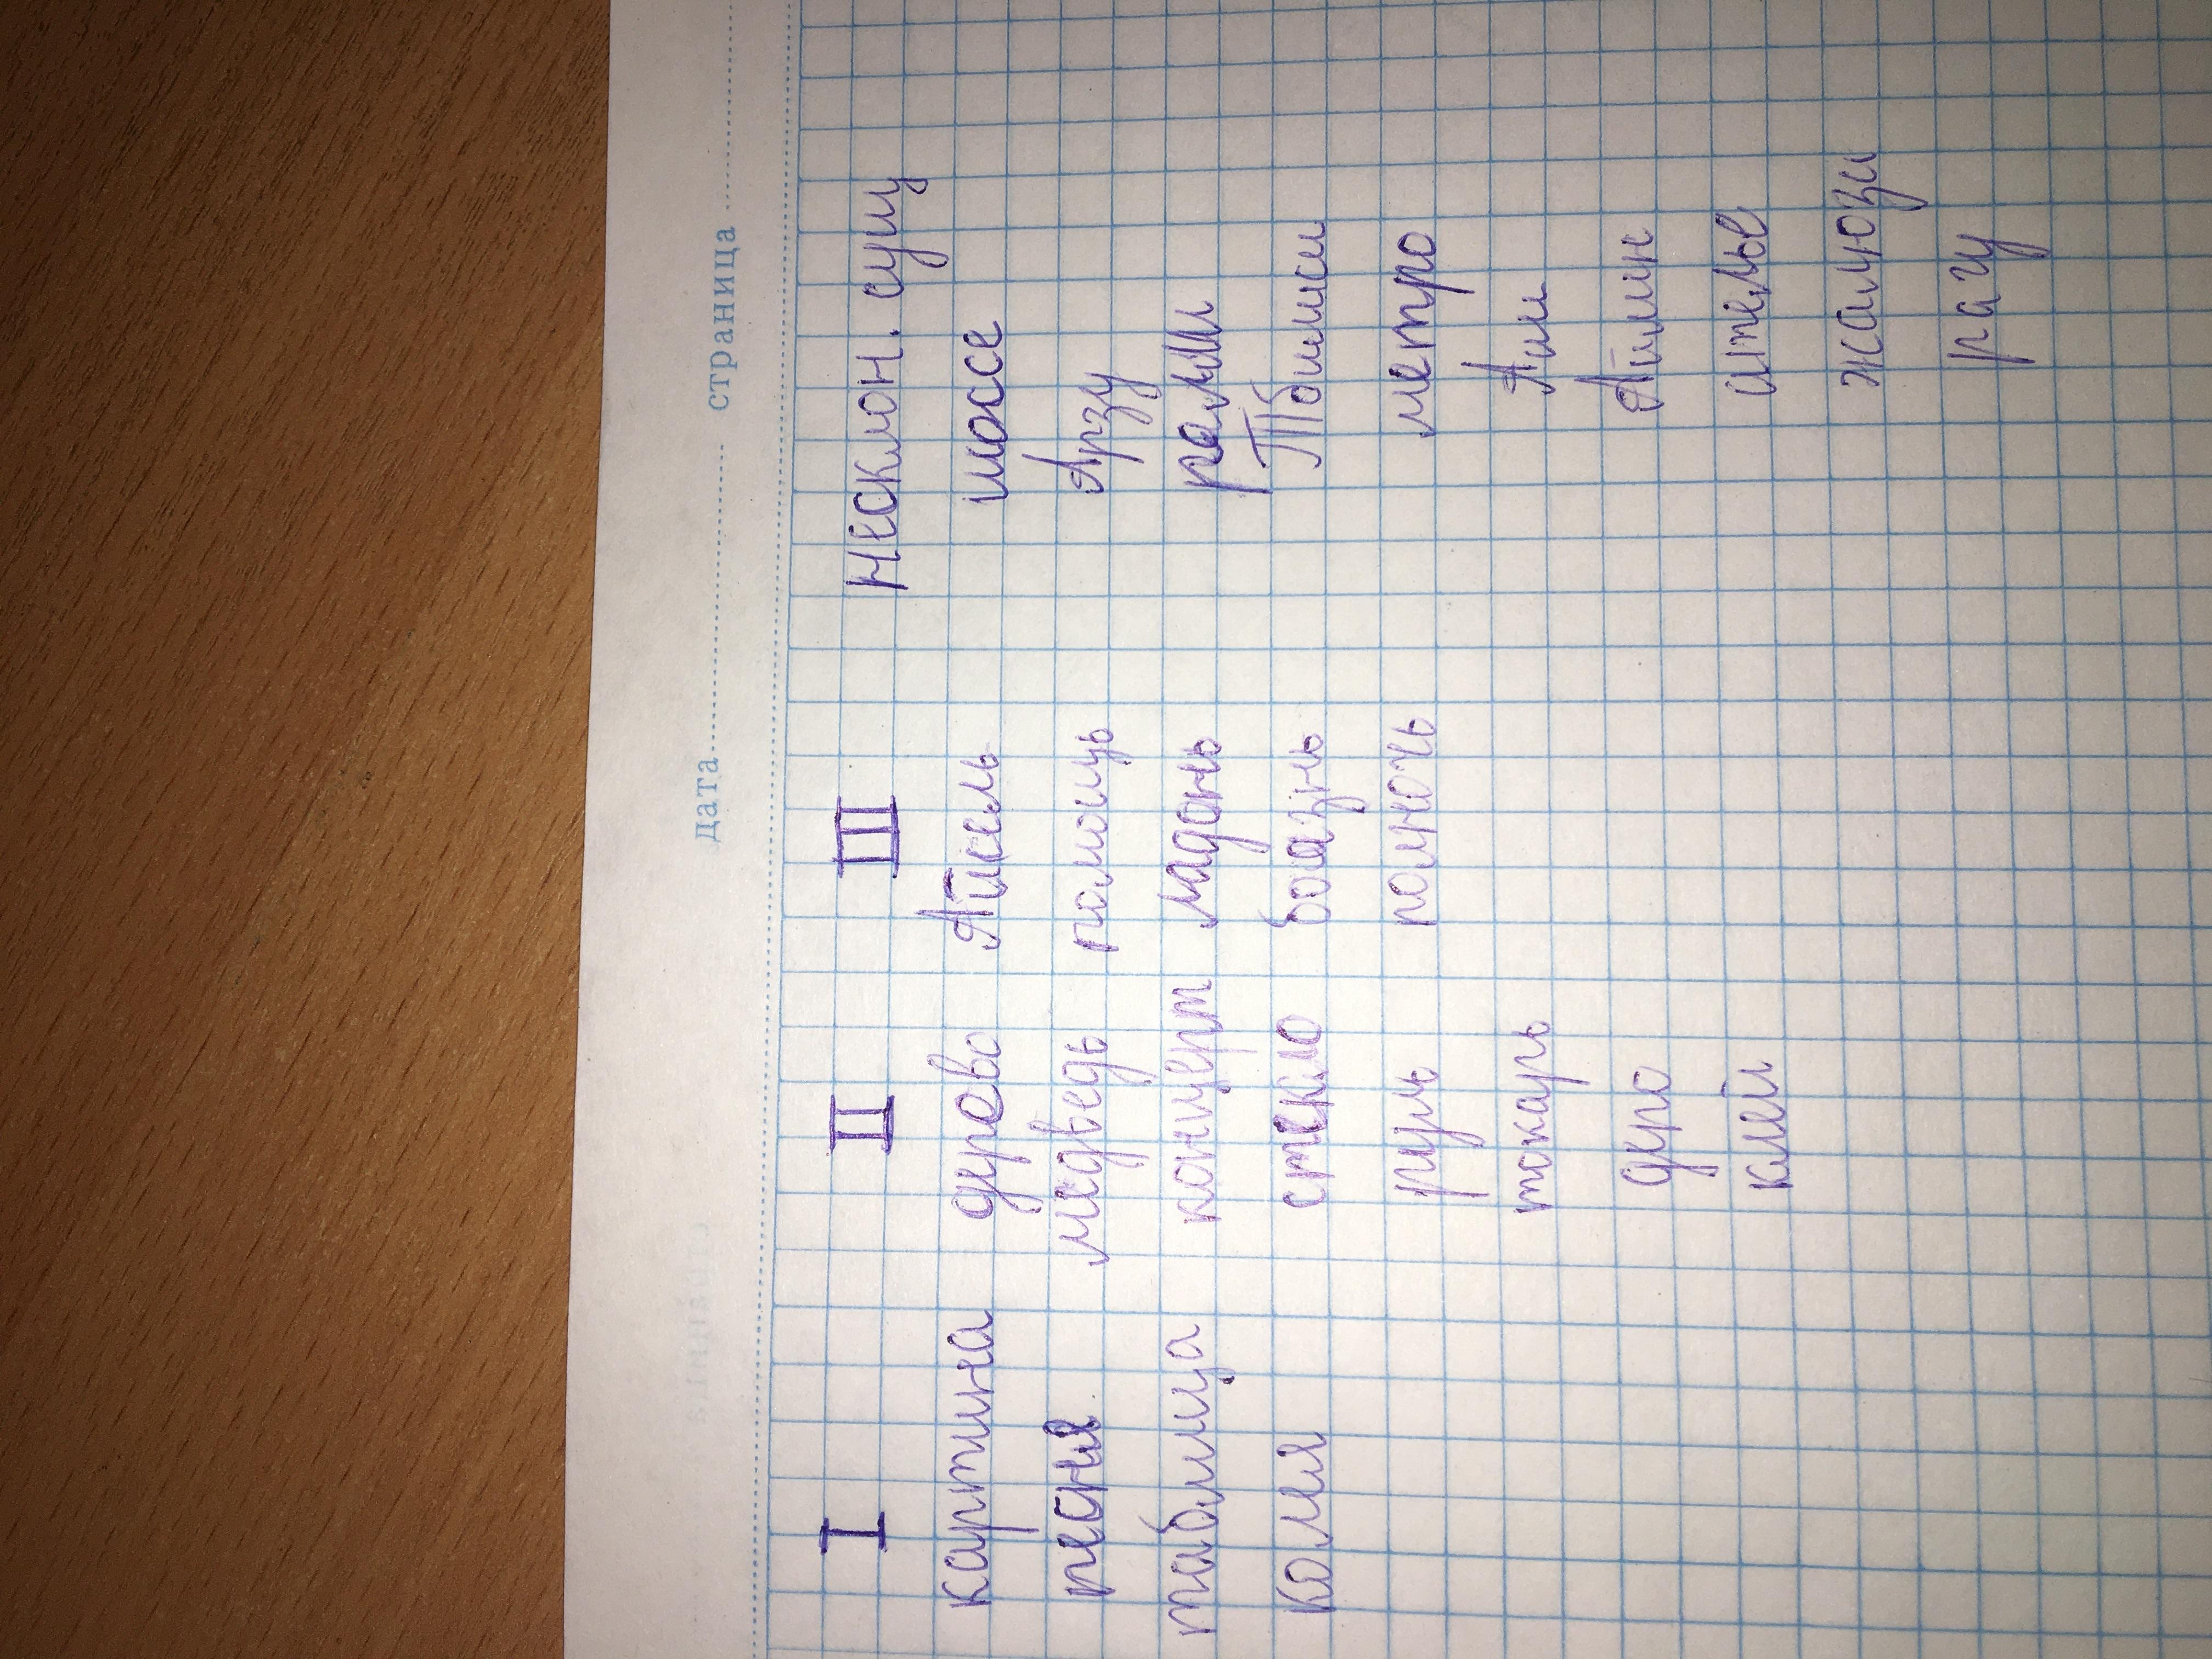 дата страница
I II III Несклон. сущ
картина дерево Айсель шоссе
песня медведь помощь Арзу
таблица концерт ладонь
Коля стекло боазнь Тбилиси
руль полночь метро
токарь Али
Айлин
клей ателье
жалюзи
рагу